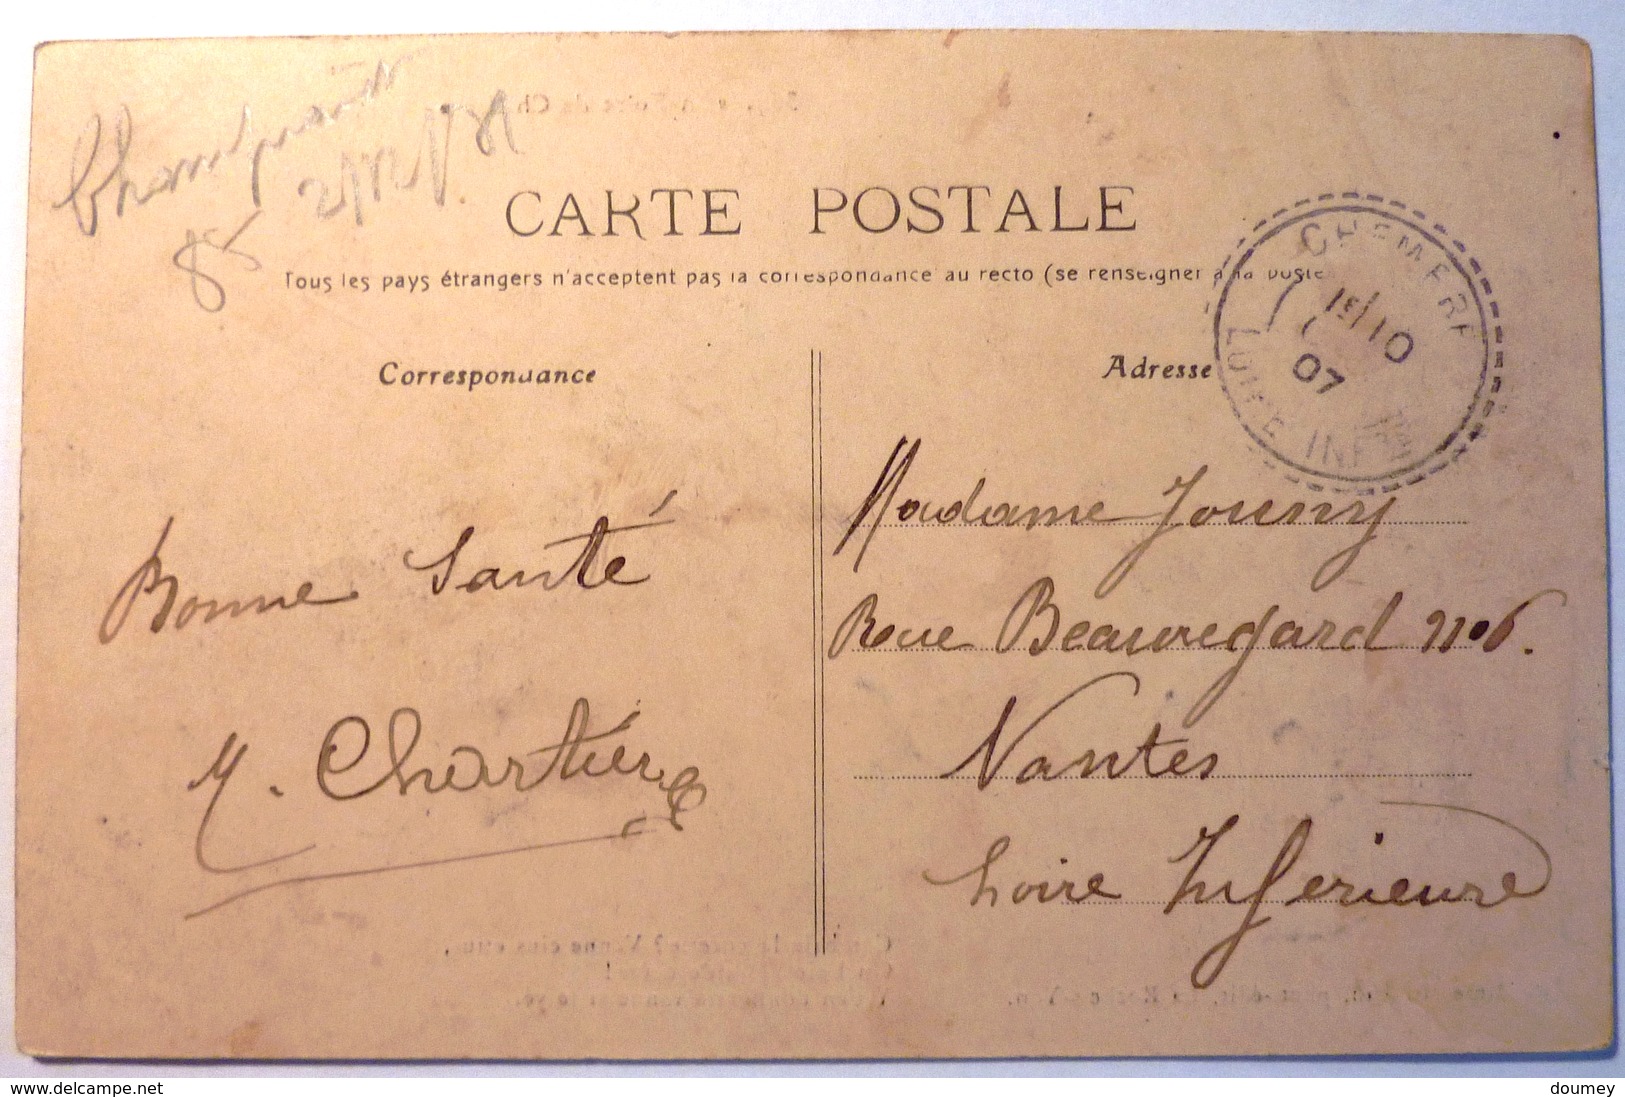 85
CARTE POSTALE
Tous les pays étrangers n'acceptent pas la correspondance au recto (se renseigner à la poste
CHEMERE
1E/10
07
LOIRE INF
Correspondance
Adresse
Bonne Santé
M. Chartier
Madame Jouny
Rue Beauregard no 6.
Nantes
Loire Inférieure
www.delcampe.net
doumey